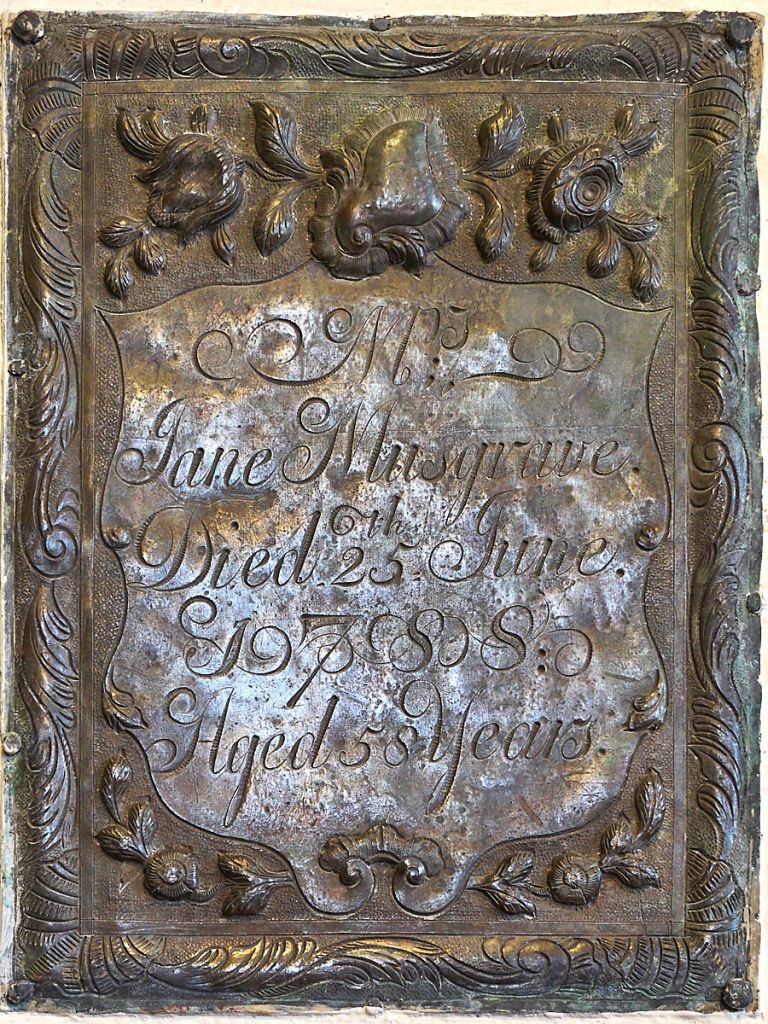 Mrs
Jane Musgrave
Died 25th June
1788
Aged 58 Years